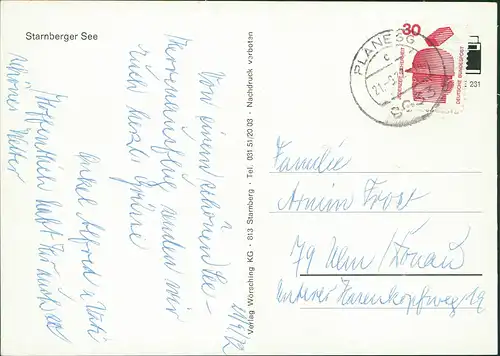 Starnberger See
21/9/72
Von einem schönen See-
Herrenausflug senden wir
Euch herzl. Grüße
Onkel Alfred u.
Hoffentlich habt Ihr auch so
schönes Wetter
Verlag Wörsching KG · 813 Starnberg · Tel. 031 51/20 03 · Nachdruck verboten
PLANEGG
c
21.-9.
8033
30
DEUTSCHE BUNDESPOST
231
Familie
Armin Frost
79 Ulm/Donau
Unterer Hasenkopfweg 19